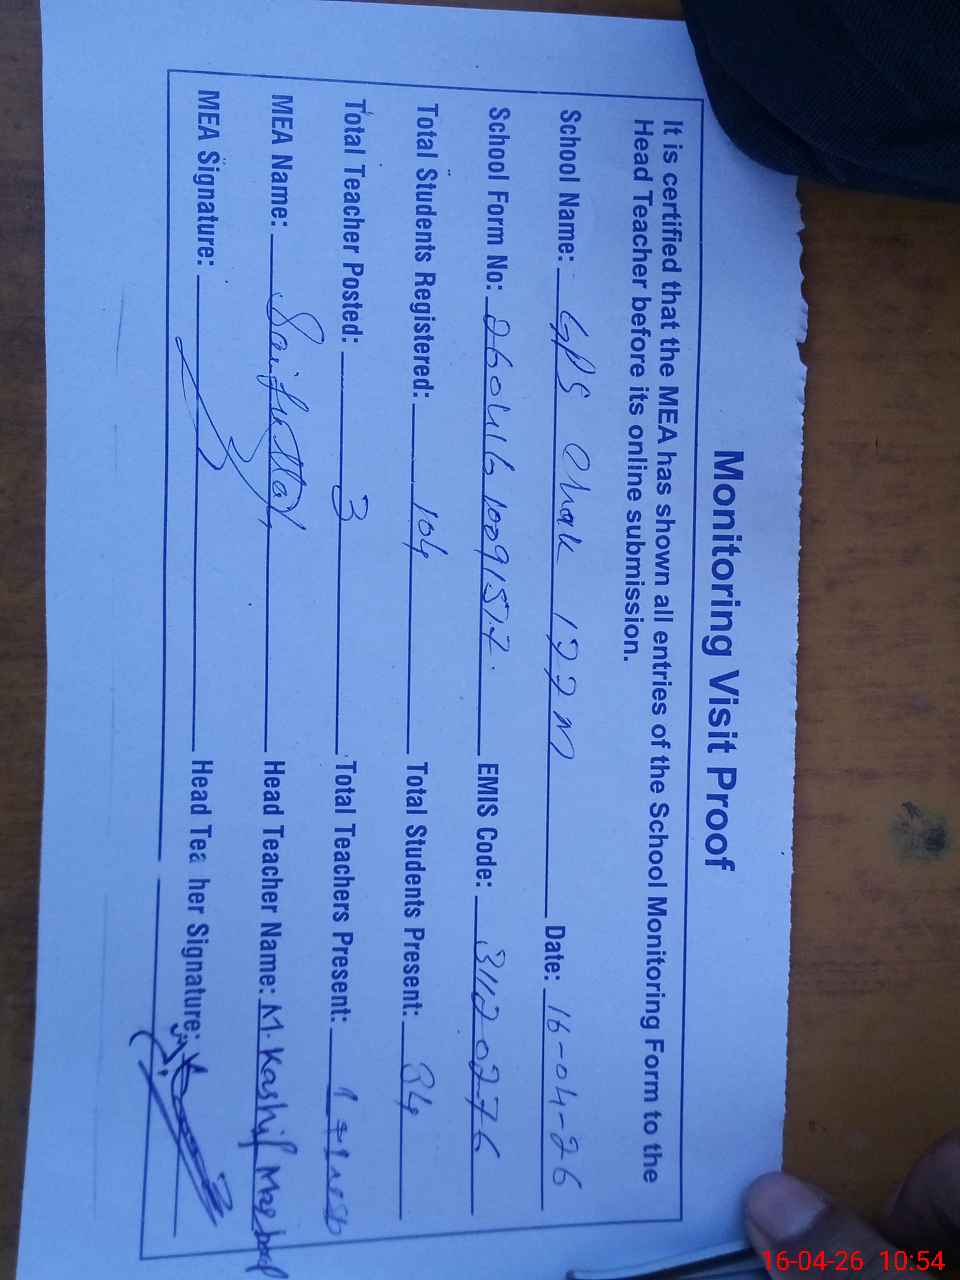 Monitoring Visit Proof
It is certified that the MEA has shown all entries of the School Monitoring Form to the
Head Teacher before its online submission.
School Name: GPS Chak 122 M Date: 16-04-26
School Form No: 260416100915 EMIS Code: 31120276
Total Students Registered: 104 Total Students Present: 34
Total Teacher Posted: 3 Total Teachers Present: 1
MEA Name: Saifullah Head Teacher Name: M. Kashif
MEA Signature: Head Tea her Signature:
16-04-26 10:54